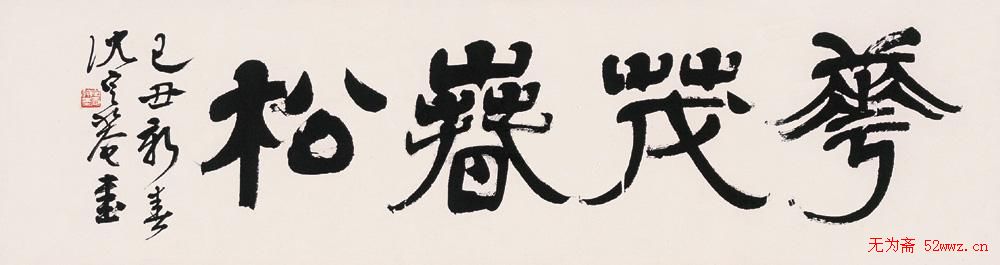 華茂春松
己丑新春
沈定菴書
无为斋 52wwz.cn